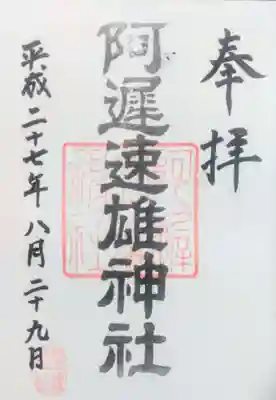 奉拝
阿遲速雄神社
平成二十七年八月二十九日